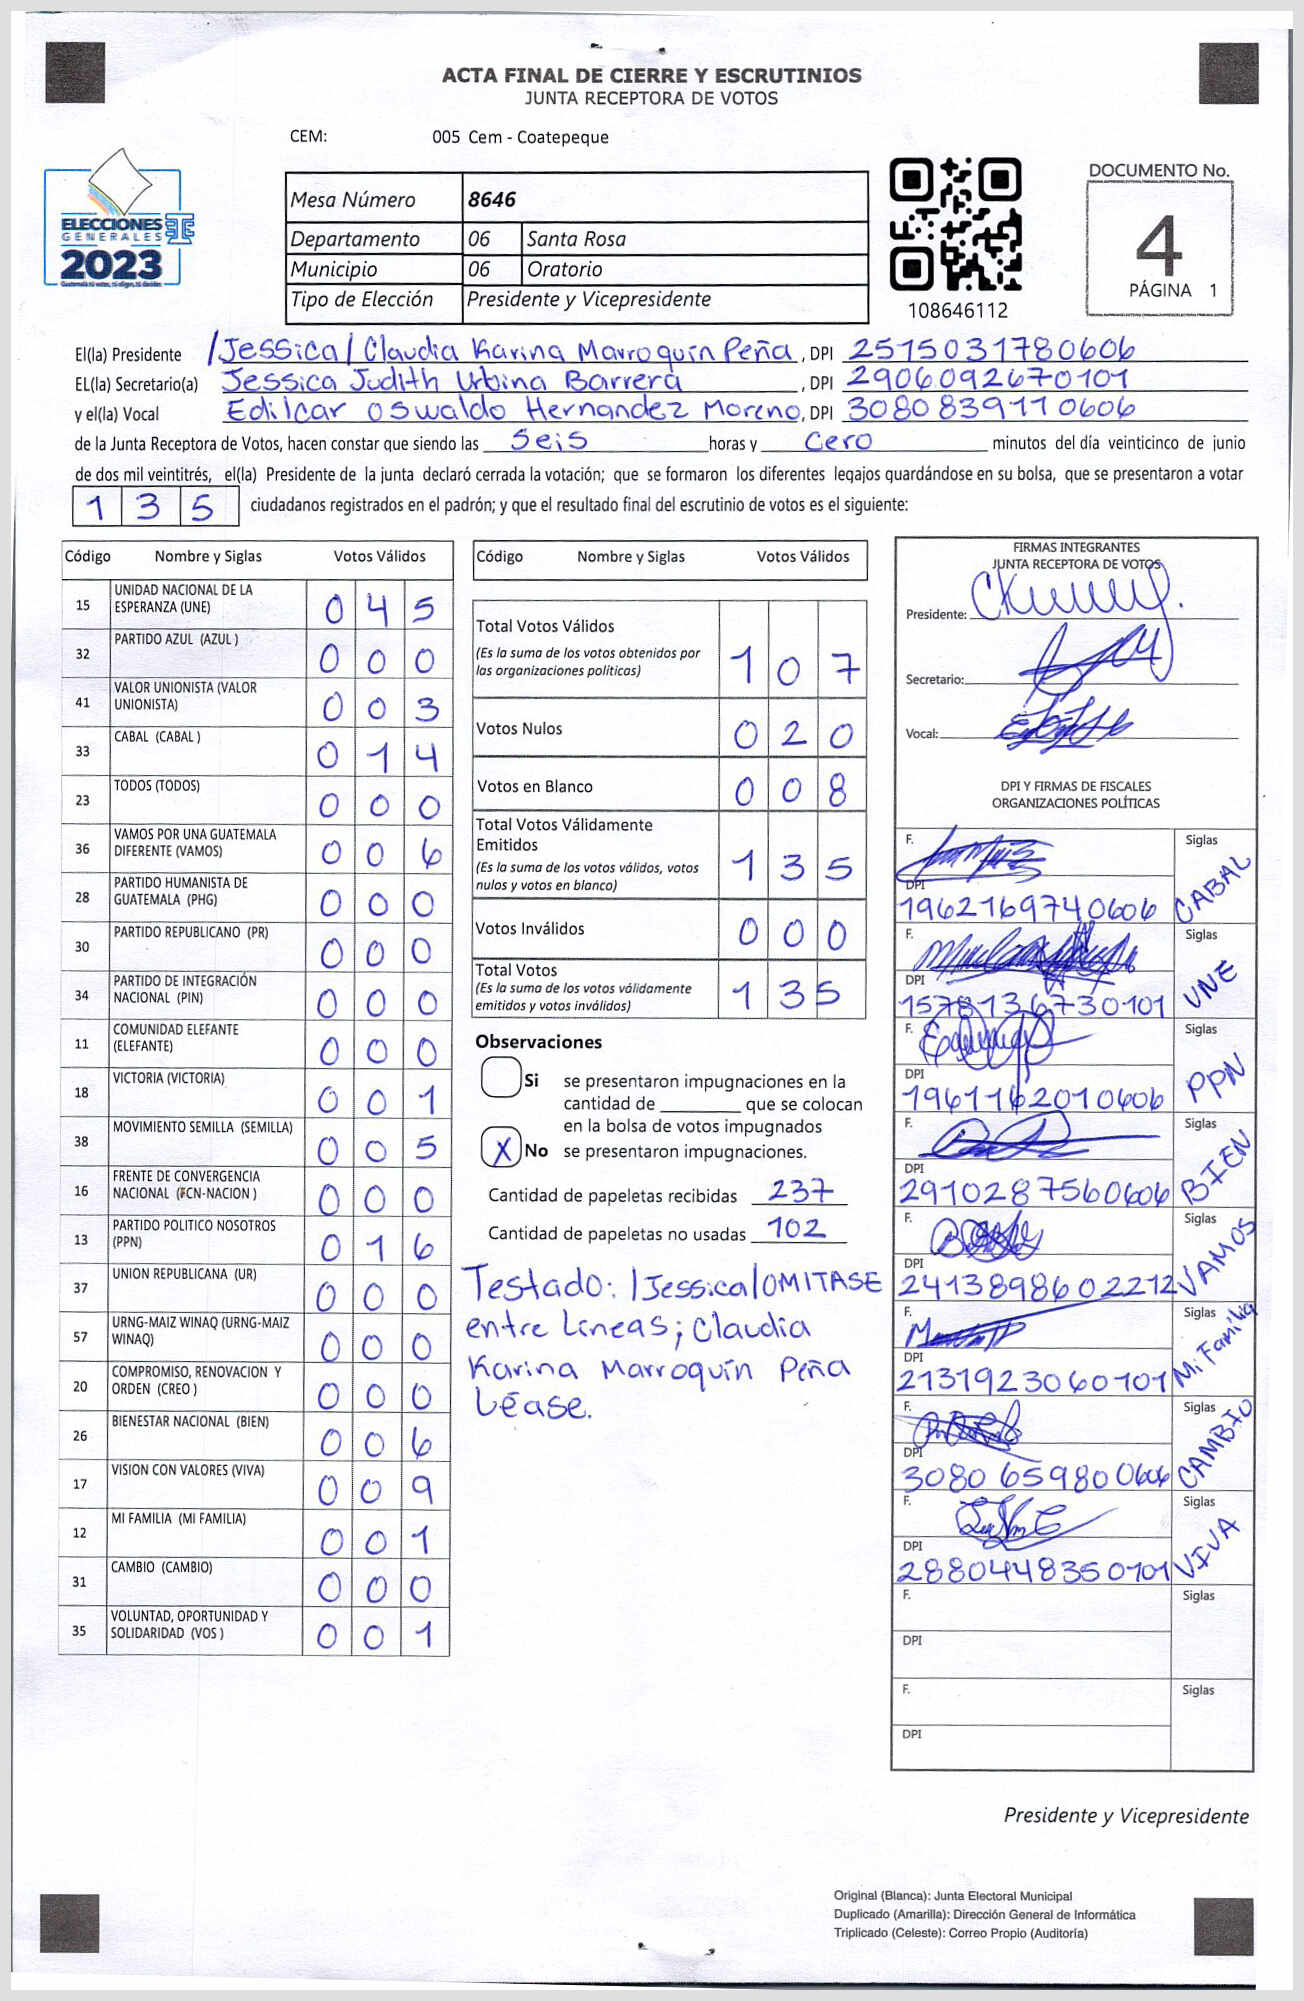 ACTA FINAL DE CIERRE Y ESCRUTINIOS
JUNTA RECEPTORA DE VOTOS
CEM: 005 Cem - Coatepeque
ELECCIONES
GENERALES
2023
Mesa Número 8646
Departamento 06 Santa Rosa
Municipio 06 Oratorio
Tipo de Elección Presidente y Vicepresidente
108646112
DOCUMENTO No.
4
PÁGINA 1
El(la) Presidente /Jessica/ Claudia Karina Marroquín Peña, DPI 2515031780606
EL(la) Secretario(a) Jessica Judith Urbina Barrera, DPI 2906092670101
y el(la) Vocal Edilcar Oswaldo Hernandez Moreno, DPI 3080839110606
de la Junta Receptora de Votos, hacen constar que siendo las Seis horas y Cero minutos del día veinticinco de junio
de dos mil veintitrés, el(la) Presidente de la junta declaró cerrada la votación; que se formaron los diferentes legajos guardándose en su bolsa, que se presentaron a votar
1 3 5 ciudadanos registrados en el padrón; y que el resultado final del escrutinio de votos es el siguiente:
Código Nombre y Siglas Votos Válidos
15 UNIDAD NACIONAL DE LA ESPERANZA (UNE) 0 4 5
32 PARTIDO AZUL (AZUL ) 0 0 0
41 VALOR UNIONISTA (VALOR UNIONISTA) 0 0 3
33 CABAL (CABAL ) 0 1 4
23 TODOS (TODOS) 0 0 0
36 VAMOS POR UNA GUATEMALA DIFERENTE (VAMOS) 0 0 6
28 PARTIDO HUMANISTA DE GUATEMALA (PHG) 0 0 0
30 PARTIDO REPUBLICANO (PR) 0 0 0
34 PARTIDO DE INTEGRACIÓN NACIONAL (PIN) 0 0 0
11 COMUNIDAD ELEFANTE (ELEFANTE) 0 0 0
18 VICTORIA (VICTORIA) 0 0 1
38 MOVIMIENTO SEMILLA (SEMILLA) 0 0 5
16 FRENTE DE CONVERGENCIA NACIONAL (FCN-NACION ) 0 0 0
13 PARTIDO POLITICO NOSOTROS (PPN) 0 1 6
37 UNION REPUBLICANA (UR) 0 0 0
57 URNG-MAIZ WINAQ (URNG-MAIZ WINAQ) 0 0 0
20 COMPROMISO, RENOVACION Y ORDEN (CREO ) 0 0 0
26 BIENESTAR NACIONAL (BIEN) 0 0 6
17 VISION CON VALORES (VIVA) 0 0 9
12 MI FAMILIA (MI FAMILIA) 0 0 1
31 CAMBIO (CAMBIO) 0 0 0
35 VOLUNTAD, OPORTUNIDAD Y SOLIDARIDAD (VOS ) 0 0 1
Código Nombre y Siglas Votos Válidos
Total Votos Válidos 1 0 7
(Es la suma de los votos obtenidos por
las organizaciones políticas)
Votos Nulos 0 2 0
Votos en Blanco 0 0 8
Total Votos Válidamente
Emitidos 1 3 5
(Es la suma de los votos válidos, votos
nulos y votos en blanco)
Votos Inválidos 0 0 0
Total Votos 1 3 5
(Es la suma de los votos válidamente
emitidos y votos inválidos)
Observaciones
Si se presentaron impugnaciones en la
cantidad de ________ que se colocan
en la bolsa de votos impugnados
X No se presentaron impugnaciones.
Cantidad de papeletas recibidas 237
Cantidad de papeletas no usadas 102
Testado: /Jessica/ OMITASE
entre Líneas; Claudia
Karina Marroquín Peña
Léase.
FIRMAS INTEGRANTES
JUNTA RECEPTORA DE VOTOS
Presidente:
Secretario:
Vocal:
DPI Y FIRMAS DE FISCALES
ORGANIZACIONES POLÍTICAS
F. Siglas
DPI 1962169740606 CABAL
F. Siglas
DPI 1578136730101 UNE
F. Siglas
DPI 1961162010606 PPN
F. Siglas
DPI 2910287560606 BIEN
F. Siglas
DPI 2413898602212 VAMOS
F. Siglas
DPI 2131923060101 Mi Familia
F. Siglas
DPI 3080659800606 CAMBIO
F. Siglas
DPI 2880448350101 VIVA
F. Siglas
DPI
F. Siglas
DPI
Presidente y Vicepresidente
Original (Blanca): Junta Electoral Municipal
Duplicado (Amarilla): Dirección General de Informática
Triplicado (Celeste): Correo Propio (Auditoría)